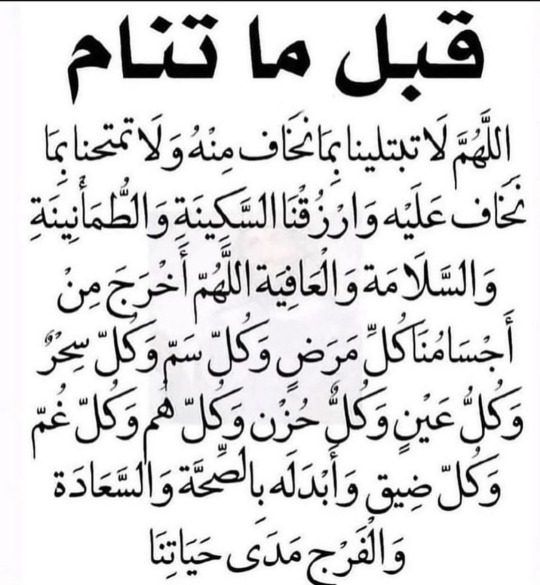 قبل ما تنام
اللَّهُمَّ لَا تبتلينا بِمَا نَخَاف مِنْهُ وَلَا تمتحنا بِمَا
نَخَاف عَلَيْه وَارْزُقْنَا السَّكِينَةِ وَالطُّمَأْنِينَةِ
وَالسَّلَامَة وَالْعَافِيَة اللَّهُمّ أَخْرَجَ مِنْ
أَجْسَامُنَا كُلِّ مَرَضٍ وَكُلّ سَمّ وَكُلّ سِحْرٌ
وَكُلُّ عَيْنٍ وَكُلُّ حُزْن وَكُلّ هُم وَكُلّ غُمّ
وَكُلّ ضِيق وَأَبْدَلَه بِالصِّحَّة وَالسَّعَادَة
وَالْفَرْج مَدَى حَيَاتِنَا